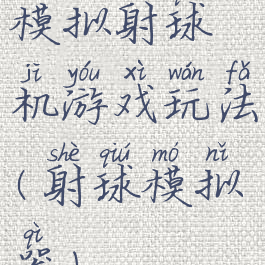 模拟射球
jī yóu xì wán fǎ
机游戏玩法
shè qiú mó nǐ
(射球模拟
qì
器)